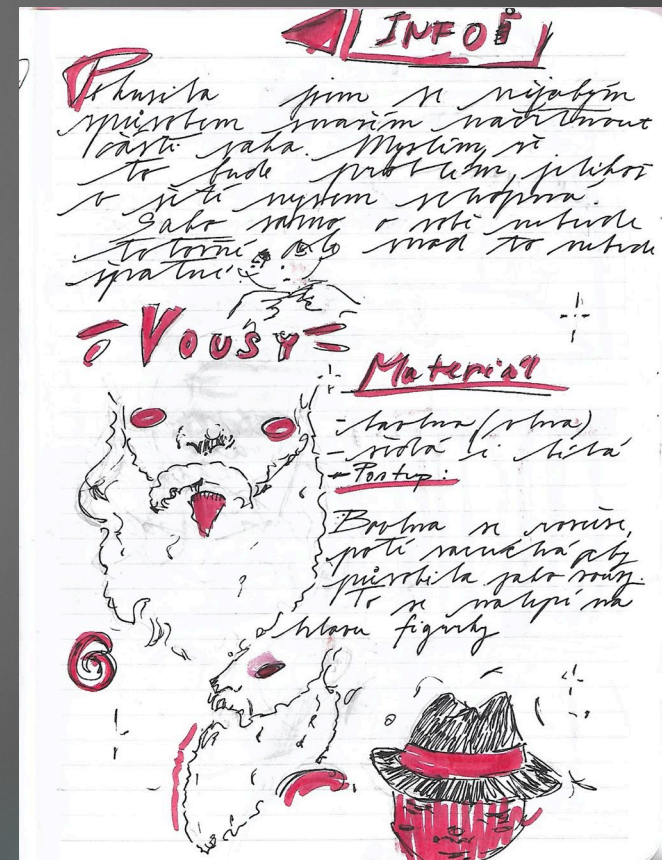 INFO
Pokusila jsem se nějakým
způsobem snažím načrtnout
části saka. Myslím, že
to bude problém, jelikož
v šití nejsem schopná.
Sako samo o sobě nebude
totožné, ale snad to nebude
špatné.
= Vousy =
Materiál
- bavlna (vlna)
- šedá či bílá
- Postup:
Bavlna se
poté zacuchá aby
působila jako vousy.
To se nalepí na
hlavu figurky